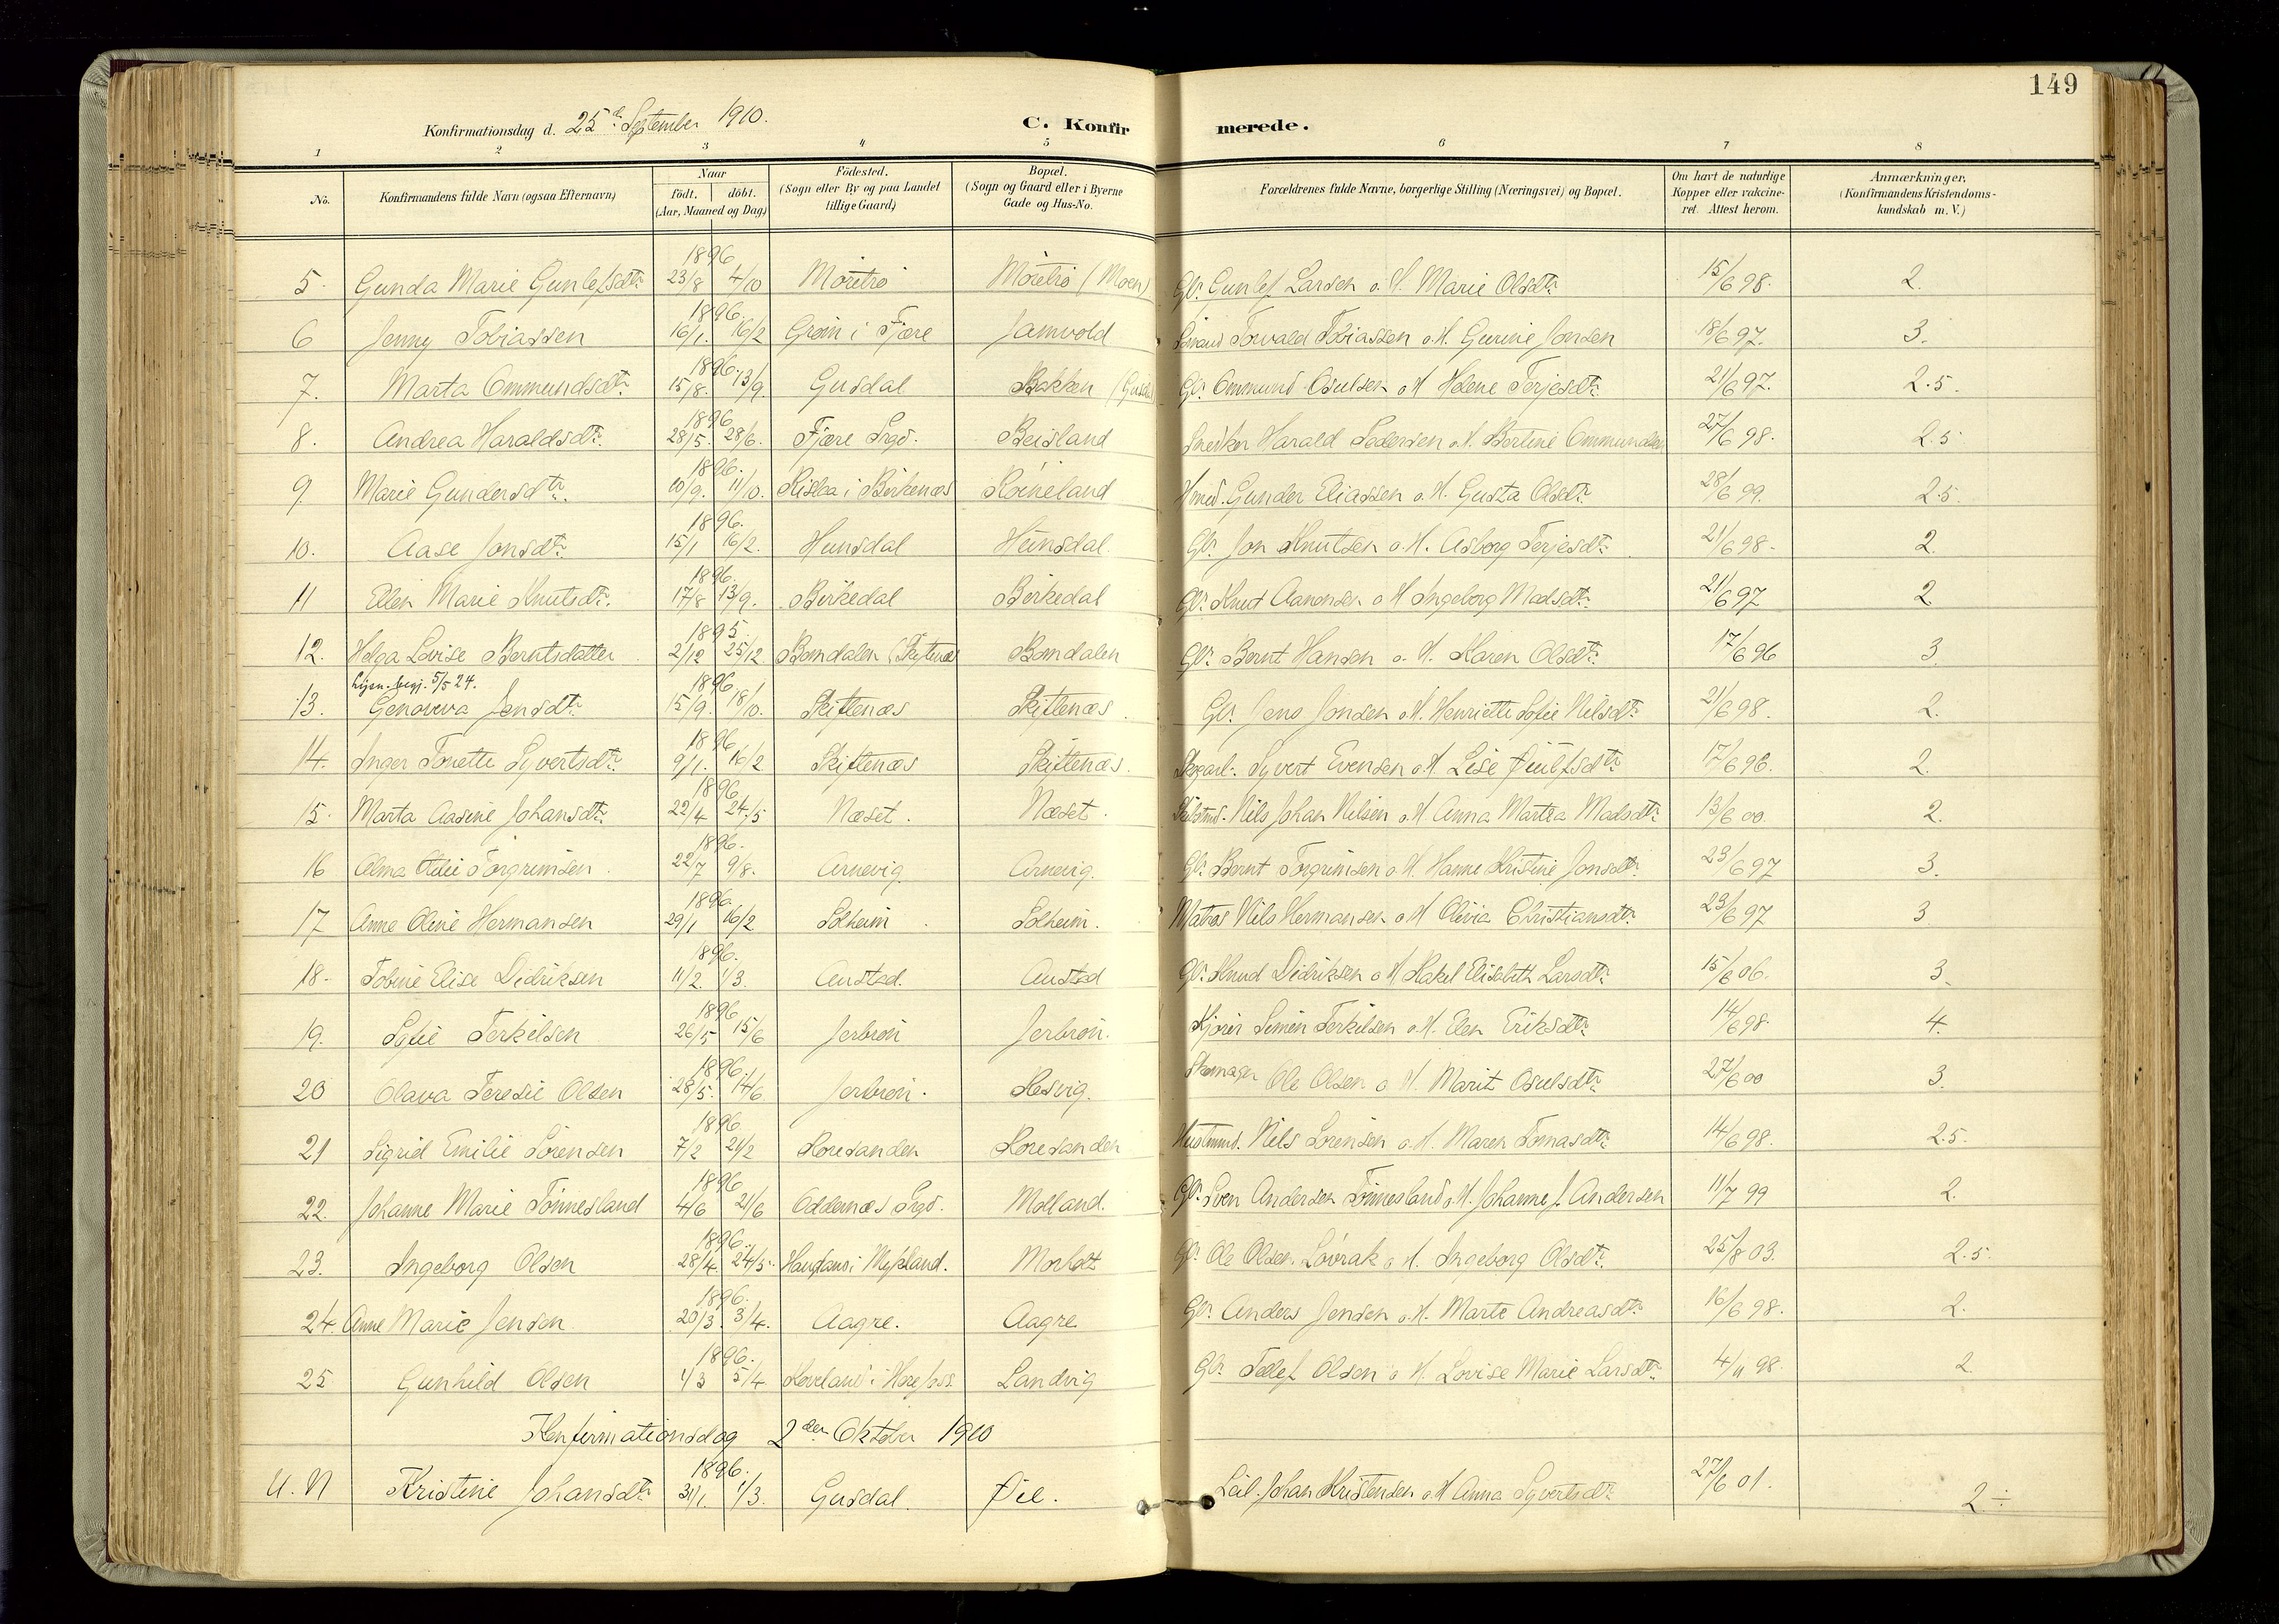 149
Konfirmationsdag d. 25de September 1910. C. Konfirmerede.
1 2 3 4 5 6 7 8
No. Konfirmandens fulde Navn (ogsaa Efternavn) Naar födt. döbt. (Aar, Maaned og Dag.) Födested. (Sogn eller By og paa Landet tillige Gaard.) Bopæl. (Sogn og Gaard eller i Byerne Gade og Hus-No. Forældrenes fulde Navne, borgerlige Stilling (Næringsvei) og Bopæl. Om havt de naturlige Kopper eller vakcineret. Attest herom. Anmærkninger, (Konfirmandens Kristendomskundskab m. V.)
1896
5. Gunda Marie Gunlefsdtr. 23/8 4/10 Möretrö Möretrö (Moen) Gbr. Gunlef Larsen o. H. Marie Olsdtr. 15/6 98. 2.
1896.
6 Jenny Tobiassen 16/1. 16/2 Gröm i Fjære Jamvold Törvald Tobiassen o. H. Gurine Jonsen 18/6 97. 3.
1896.
7. Marta Ommundsdtr. 15/8. 13/9. Gusdal Bakken Gbr. Ommund Osulsen o H Helene Terjesdtr. 21/6 97. 2.5.
1896
8. Andrea Haraldsdtr. 28/5. 28/6. Fjære Srgd. Beisland Snedker Harald Pedersen o. H. Bertine Ommundsen 27/6 98. 2.5
1896.
9. Marie Gundersdtr. 10/9. 11/10. Rislaa i Birkenæs Röineland Hmd. Gunder Eliassen o. H. Gusta Olsdtr. 28/6 99. 2.5.
1896.
10. Aase Jonsdtr. 15/1 16/2. Hunsdal Hunsdal. Gbr. Jon Knutsen o. H. Asborg Terjesdtr. 21/6 98. 2.
1896.
11 Ellen Marie Knutsdtr. 17/8 13/9. Birkedal Birkedal Gbr. Knut Aanonsen o H Ingeborg Madsdtr. 21/6 97 2.
1895.
12. Helga Lovise Berntsdatter 2/12 25/12. Bomdalen (Skiftenæs Bomdalen Gbr. Bernt Hansen o. H. Karen Olsdtr. 17/6 96 3.
Lysn. begj. 5/5 24. 1896.
13. Genoveva Jensdtr. 15/9. 18/10. Skiftenæs Skiftenæs. Gbr. Jens Jonsen o H. Henriette Sofie Nilsdtr. 21/6 98. 2.
1896
14. Inger Tonette Syvertsdtr. 9/1. 16/2 Skiftenæs Skiftenæs. Syvert Evensen o. H. Lise 17/6 96. 2.
1896
15. Marta Aasine Johansdtr. 22/4 24/5 Næset. Næset. Nils Johan Nilsen o. H Anna Martea Madsdtr. 13/6 00. 2.
1896.
16 Alma Otilie Torgrimsen. 22/7 9/8. Arnevig. Arnevig. Gbr. Bernt Torgrimsen o. H. Hanne Kristine Jonsdtr. 23/6 97 3.
1896
17 Anne Oline Hermansen 29/1 16/2 Solheim. Solheim. Matros Nils Hermansen o. H Olivia Christiansdtr. 23/6 97 3
1896.
18. Tobine Elise Didriksen 11/2. 1/3. Austad. Austad Gbr. Knud Didriksen o H Rakel Elisabeth Larsdtr. 15/6 06. 3.
1896
19. Sofie Terkilsen 26/5 15/6 Jerbrön Jerbrön. Simen Terkilsen o. H. Elen Eriksdtr. 14/6 98. 4.
1896.
20 Olava Teresie Olsen 28/5. 14/6 Jerbrön. Resvig. Skomager Ole Olsen o H. Marit Osulsdtr. 27/6 00 3.
1896
21 Sigrid Emilie Sörensen 7/2 21/2 Roresanden Roresanden Husmd. Nils Sörensen o. H. Maren Tomasdtr. 14/6 98. 2.5.
1896
22. Johanne Marie Tönnesland 4/6 21/6 Oddernæs Srgd. Molland. Gbr. Sven Andersen Tönnesland o. H. Johanne J. Andersen 11/7 99 2.
1896.
23. Ingeborg Olsen 28/4. 24/5. Haugland i Mykland. Morholt Gbr. Ole Olsen Lövrak o. H. Ingeborg Olsdtr. 25/8 03. 2.5.
1896.
24. Anne Marie Jensen 20/3. 3/4. Aagre. Aagre. Gbr. Anders Jensen o. H. Marte Andreasdtr. 16/6 98. 2.
1896.
25. Gunhild Olsen 1/3 5/4 Landvig Gbr. Tellef Olsen o H. Lovise Marie Larsdtr. 4/11 98. 2
Konfirmationsdag 2den Oktober 1910
1896.
U. N Kristine Johansdtr. 31/1. 1/3. Gusdal. Øie. Leil. Johan Kristensen o. H Anna Syvertsdtr. 27/6 01. 2 ÷